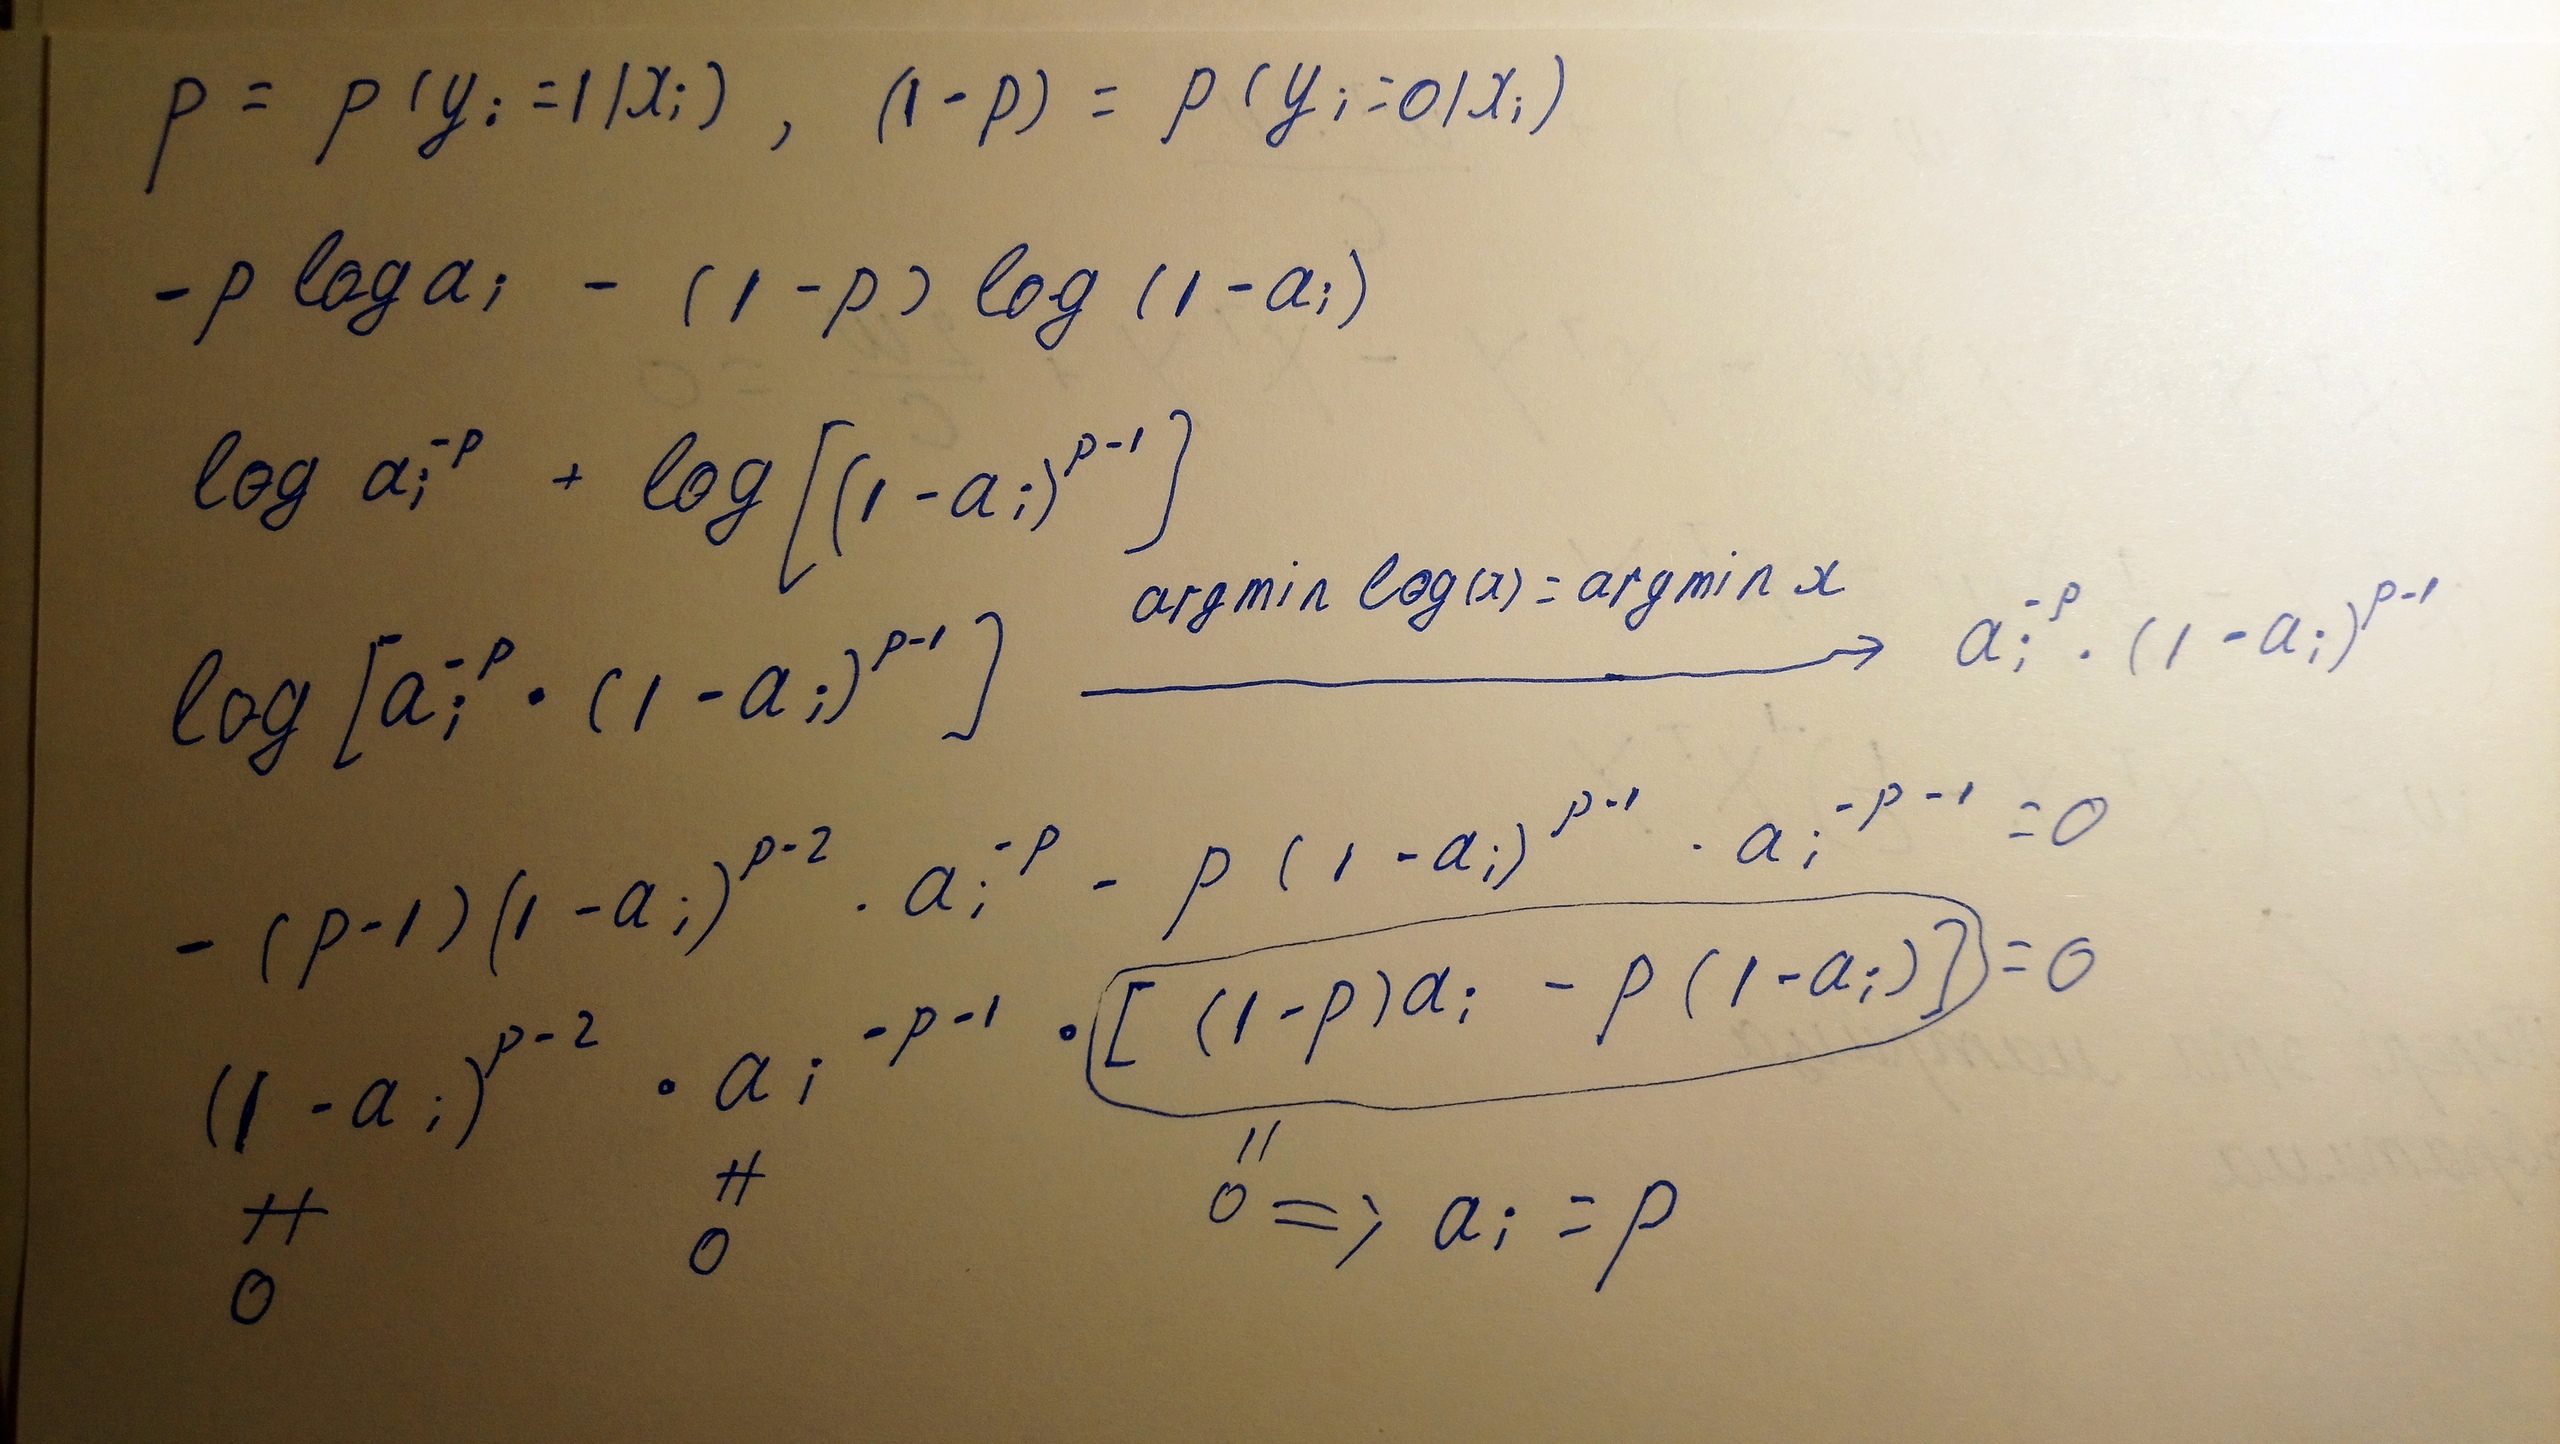 p = p(yᵢ=1|xᵢ), (1-p) = p(yᵢ=0|xᵢ)
-p log aᵢ - (1-p) log (1-aᵢ)
log aᵢ^{-p} + log[(1-aᵢ)^{p-1}]
argmin log(x) = argmin x
log[aᵢ^{-p} · (1-aᵢ)^{p-1}] → aᵢ^{-p} · (1-aᵢ)^{p-1}
-(p-1)(1-aᵢ)^{p-2} · aᵢ^{-p} - p(1-aᵢ)^{p-1} · aᵢ^{-p-1} = 0
(1-aᵢ)^{p-2} · aᵢ^{-p-1} · [(1-p)aᵢ - p(1-aᵢ)] = 0
≠ ≠ =
0 0 0 => aᵢ = p